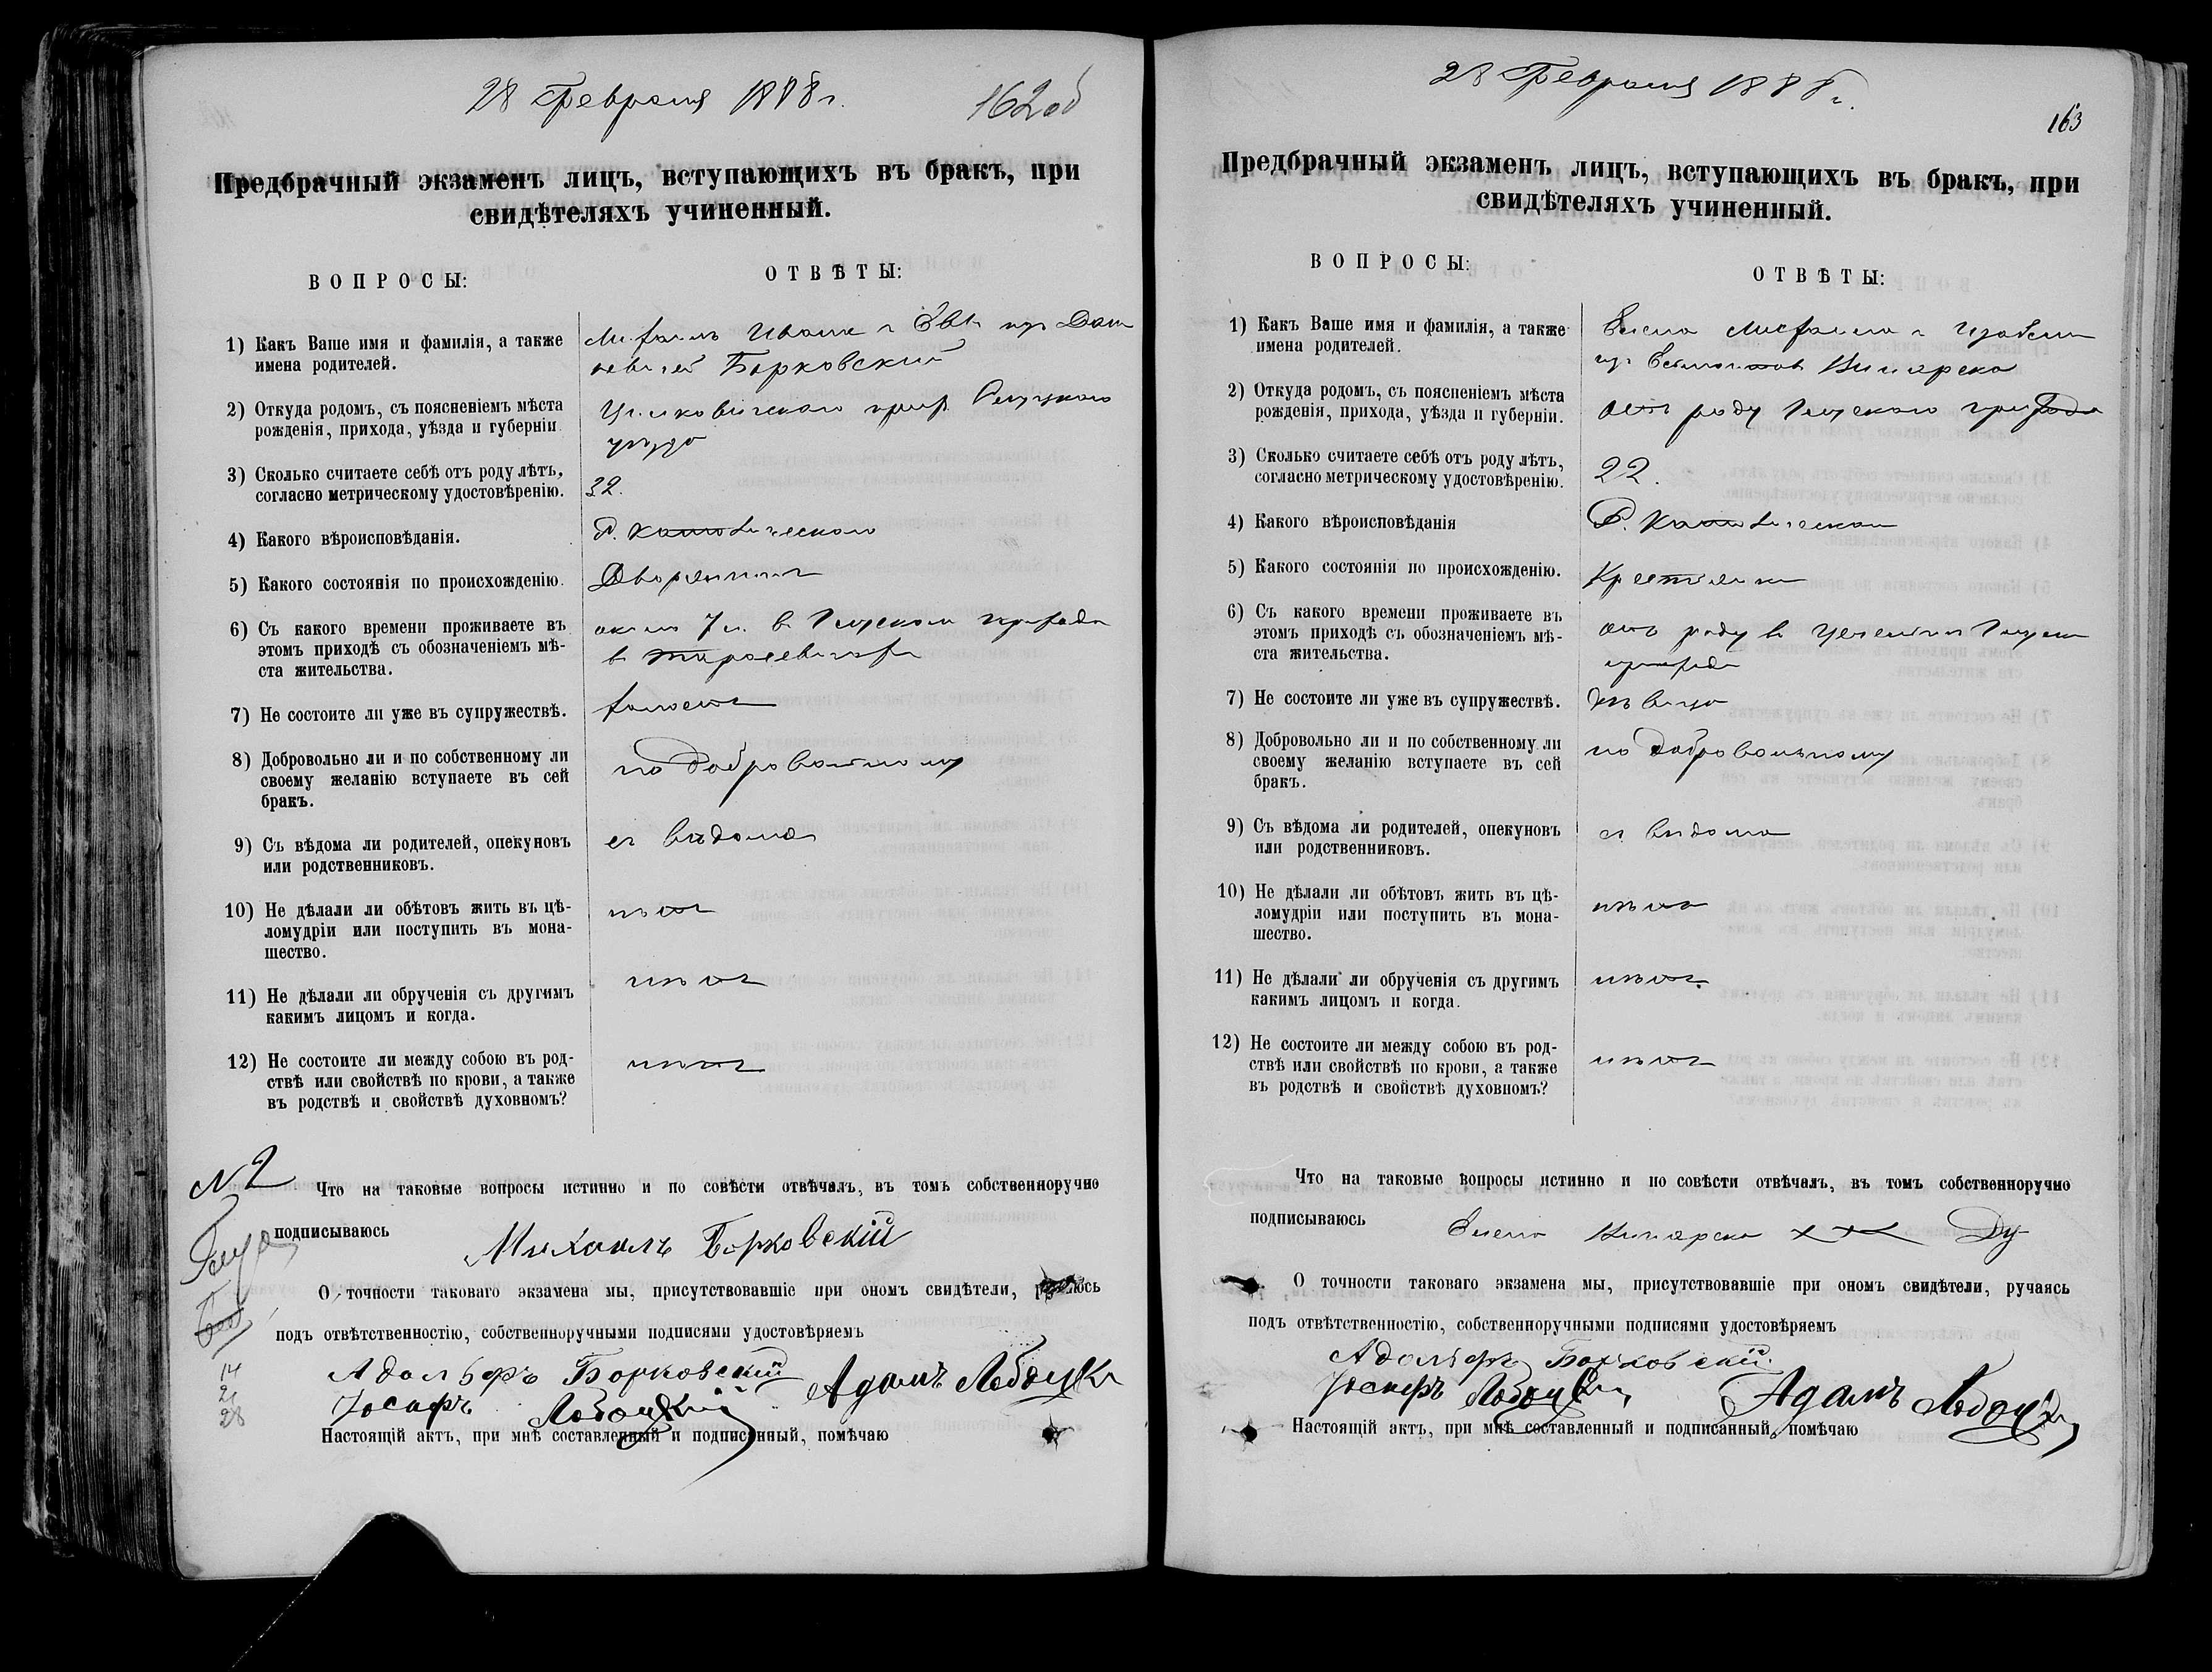 28 Февраля 1888 г.
162 об
Предбрачный экзаменъ лицъ, вступающихъ въ бракъ, при
свидѣтеляхъ учиненный.
ВОПРОСЫ:
ОТВѢТЫ:
1) Какъ Ваше имя и фамилія, а также
имена родителей.
Ивана и Евы изъ
Борковский
2) Откуда родомъ, съ поясненіемъ мѣста
рожденія, прихода, уѣзда и губерніи
уѣзда
3) Сколько считаете себѣ отъ роду лѣтъ,
согласно метрическому удостовѣренію.
32.
4) Какого вѣроисповѣданія.
Р. Католическаго
5) Какого состоянія по происхожденію.
Дворянинъ
6) Съ какого времени проживаете въ
этомъ приходѣ съ обозначеніемъ мѣ-
ста жительства.
около 7 л. в
в
7) Не состоите ли уже въ супружествѣ.
холостъ
8) Добровольно ли и по собственному ли
своему желанію вступаете въ сей
бракъ.
по добровольному
9) Съ вѣдома ли родителей, опекуновъ
или родственниковъ.
съ вѣдома
10) Не дѣлали ли обѣтовъ жить въ цѣ-
ломудріи или поступить въ мона-
шество.
нѣтъ
11) Не дѣлали ли обрученія съ другимъ
какимъ лицомъ и когда.
нѣтъ
12) Не состоите ли между собою въ род-
ствѣ или свойствѣ по крови, а также
въ родствѣ и свойствѣ духовномъ?
нѣтъ
№ 2
Что на таковые вопросы истинно и по совѣсти отвѣчалъ, въ томъ собственноручно
подписываюсь
Михаилъ Борковскій
О точности таковаго экзамена мы, присутствовавшіе при ономъ свидѣтели,
подъ отвѣтственностію, собственноручными подписями удостовѣряемъ
Адольфъ Борковский Адамъ
Іосифъ
14
21
28
Настоящій актъ, при мнѣ составленный и подписанный, помѣчаю
28 Февраля 1888 г.
163
Предбрачный экзаменъ лицъ, вступающихъ въ бракъ, при
свидѣтеляхъ учиненный.
ВОПРОСЫ:
ОТВѢТЫ:
1) Какъ Ваше имя и фамилія, а также
имена родителей.
Елена
изъ
2) Откуда родомъ, съ поясненіемъ мѣста
рожденія, прихода, уѣзда и губерніи.
отъ роду прихода
3) Сколько считаете себѣ отъ роду лѣтъ,
согласно метрическому удостовѣренію.
22.
4) Какого вѣроисповѣданія
Р. Католическаго
5) Какого состоянія по происхожденію.
Крестьянка
6) Съ какого времени проживаете въ
этомъ приходѣ съ обозначеніемъ мѣ-
ста жительства.
отъ роду в
прихода
7) Не состоите ли уже въ супружествѣ.
дѣвица
8) Добровольно ли и по собственному ли
своему желанію вступаете въ сей
бракъ.
по добровольному
9) Съ вѣдома ли родителей, опекуновъ
или родственниковъ.
съ вѣдома
10) Не дѣлали ли обѣтовъ жить въ цѣ-
ломудріи или поступить въ мона-
шество.
нѣтъ
11) Не дѣлали ли обрученія съ другимъ
какимъ лицомъ и когда.
нѣтъ
12) Не состоите ли между собою въ род-
ствѣ или свойствѣ по крови, а также
въ родствѣ и свойствѣ духовномъ?
нѣтъ
Что на таковые вопросы истинно и по совѣсти отвѣчалъ, въ томъ собственноручно
подписываюсь
Елена xxx
О точности таковаго экзамена мы, присутствовавшіе при ономъ свидѣтели, ручаясь
подъ отвѣтственностію, собственноручными подписями удостовѣряемъ
Адольфъ Борковскій
Іосифъ Адамъ
Настоящій актъ, при мнѣ составленный и подписанный, помѣчаю